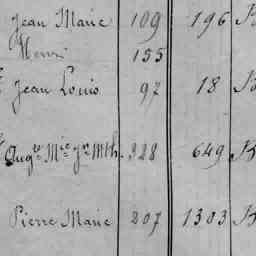 Jean Marie 109 196
Henri 155
Jean Louis 97 18
Aug.te M.ie 328 649
Pierre Marie 207 1303